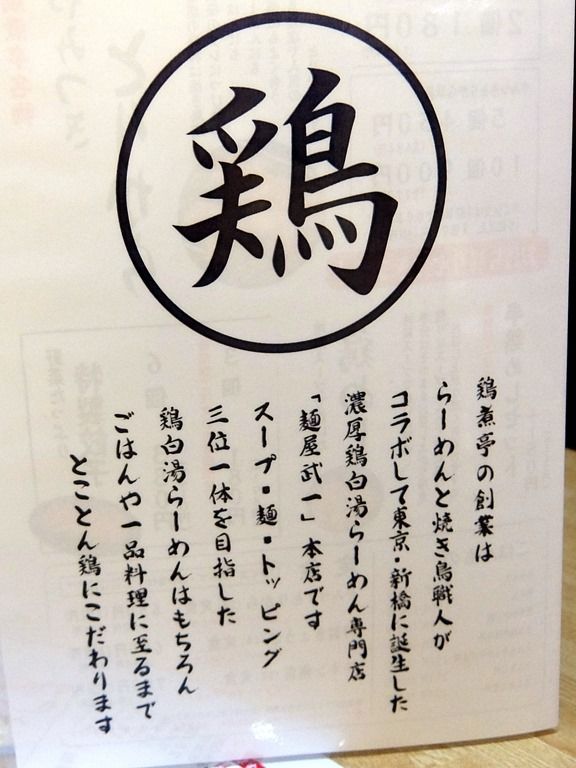 鶏
鶏煮亭の創業は
らーめんと焼き鳥職人が
コラボして東京・新橋に誕生した
濃厚鶏白湯らーめん専門店
「麺屋武一」本店です
スープ・麺・トッピング
三位一体を目指した
鶏白湯らーめんはもちろん
ごはんや一品料理に至るまで
とことん鶏にこだわります